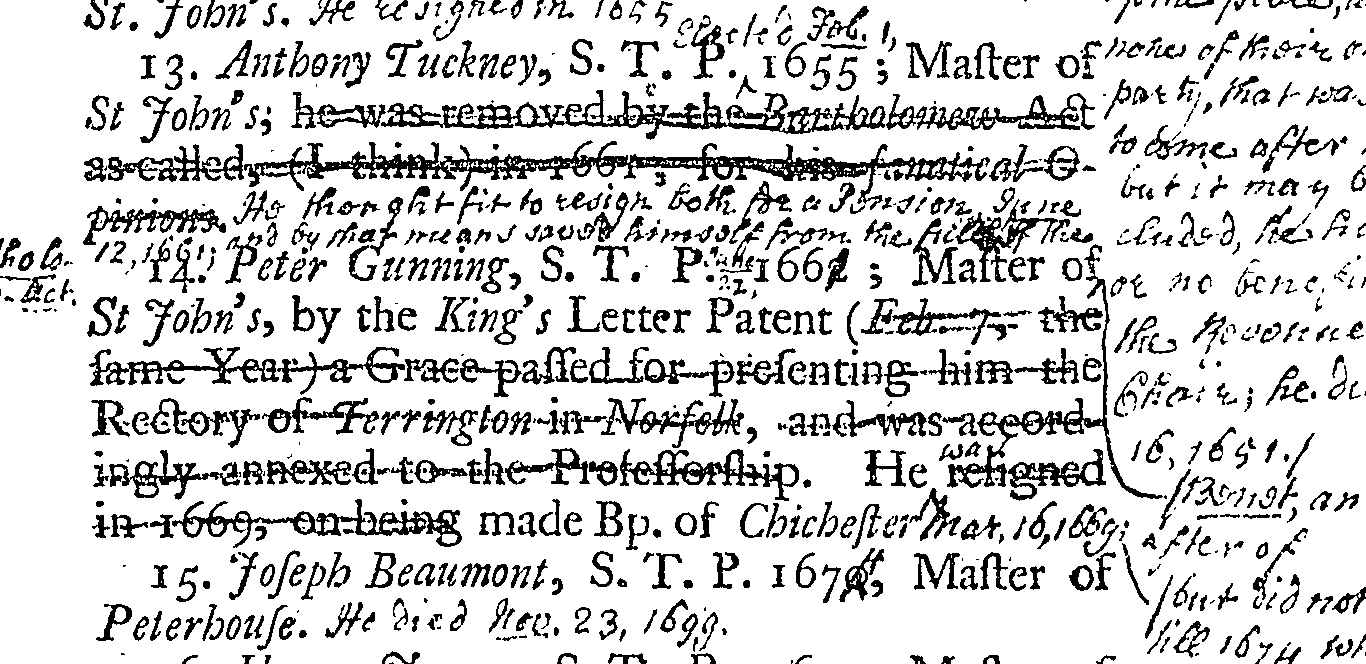 St. John's. He resigned in 1655
Elected Feb. 1,
13. Anthony Tuckney, S. T. P. 1655 ; Maſter of
St John's; he was removed by the Bartholomew Act
as called, (I think) in 1661, for his fanatical O-
pinions. He thought fit to resign both for a Pension June
12, 1661; and by that means saved himself from the of the
tholo-
Act.
14. Peter Gunning, S. T. P. June 1661 ; Maſter of
St John's, by the King's Letter Patent (Feb. 7, the
ſame Year) a Grace paſſed for preſenting him the
Rectory of Terrington in Norfolk, and was accord-
ingly annexed to the Profeſſorſhip. He reſigned
was
in 1669, on being made Bp. of Chicheſter Mar. 16, 1669;
15. Joſeph Beaumont, S. T. P. 167 , Maſter of
Peterhouſe. He died Nov. 23, 1699.
none of their
party, that was
to come after
but it may
cluded, he
or no
the Revenue
Chair; he
16, 1651.
after of
but did not
till 1674